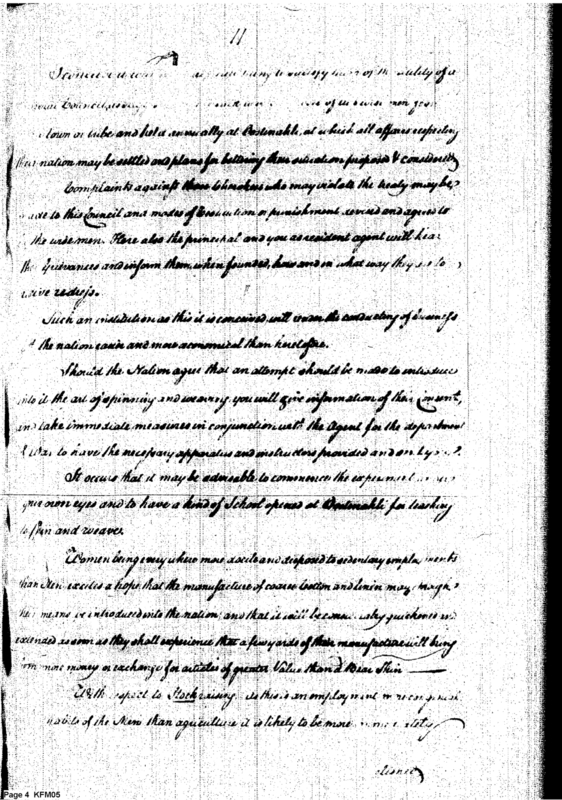 11
I conceive it will be
Council
town or tribe and held annually at Oostinahli, at which all affairs respecting
nation may be settled and plans for bettering their situation proposed & considered
Complaints against those Cherokees who may violate the treaty may be
made to this Council and modes of Execution or punishment devised and agreed to
the wise men. Here also the principal and you as resident agent will hear
their Grievances and inform them, when founded, how and in what way they are to
receive redress.
Such an institution as this it is conceived, will render the conducting of business
the nation easier and more œconomical than heretofore.
Should the Nation agree that an attempt should be made to introduce
into it the art of spinning and weaving, you will give information of their Consent,
and take immediate measures in conjunction with the Agent for the department
of War to have the necessary apparatus and instructors provided and
It occurs that it may be adviseable to commence the experiment under
your own eyes and to have a kind of School opened at Oostinahli for teaching
to spin and weave.
Women being every where more docile and disposed to sedentary employments
than Men excites a hope that the manufacture of coarse Cotton and linen may
means be introduced into the nation, and that it will be considerably quickened and
extended as soon as they shall experience that a few yards of their manufacture will bring
more money or exchange for articles of greater Value than a Bear Skin
With respect to Stock raising. As this is an employment more congenial
habits of the Men than agriculture it is likely to be more
Page 4 KFM05